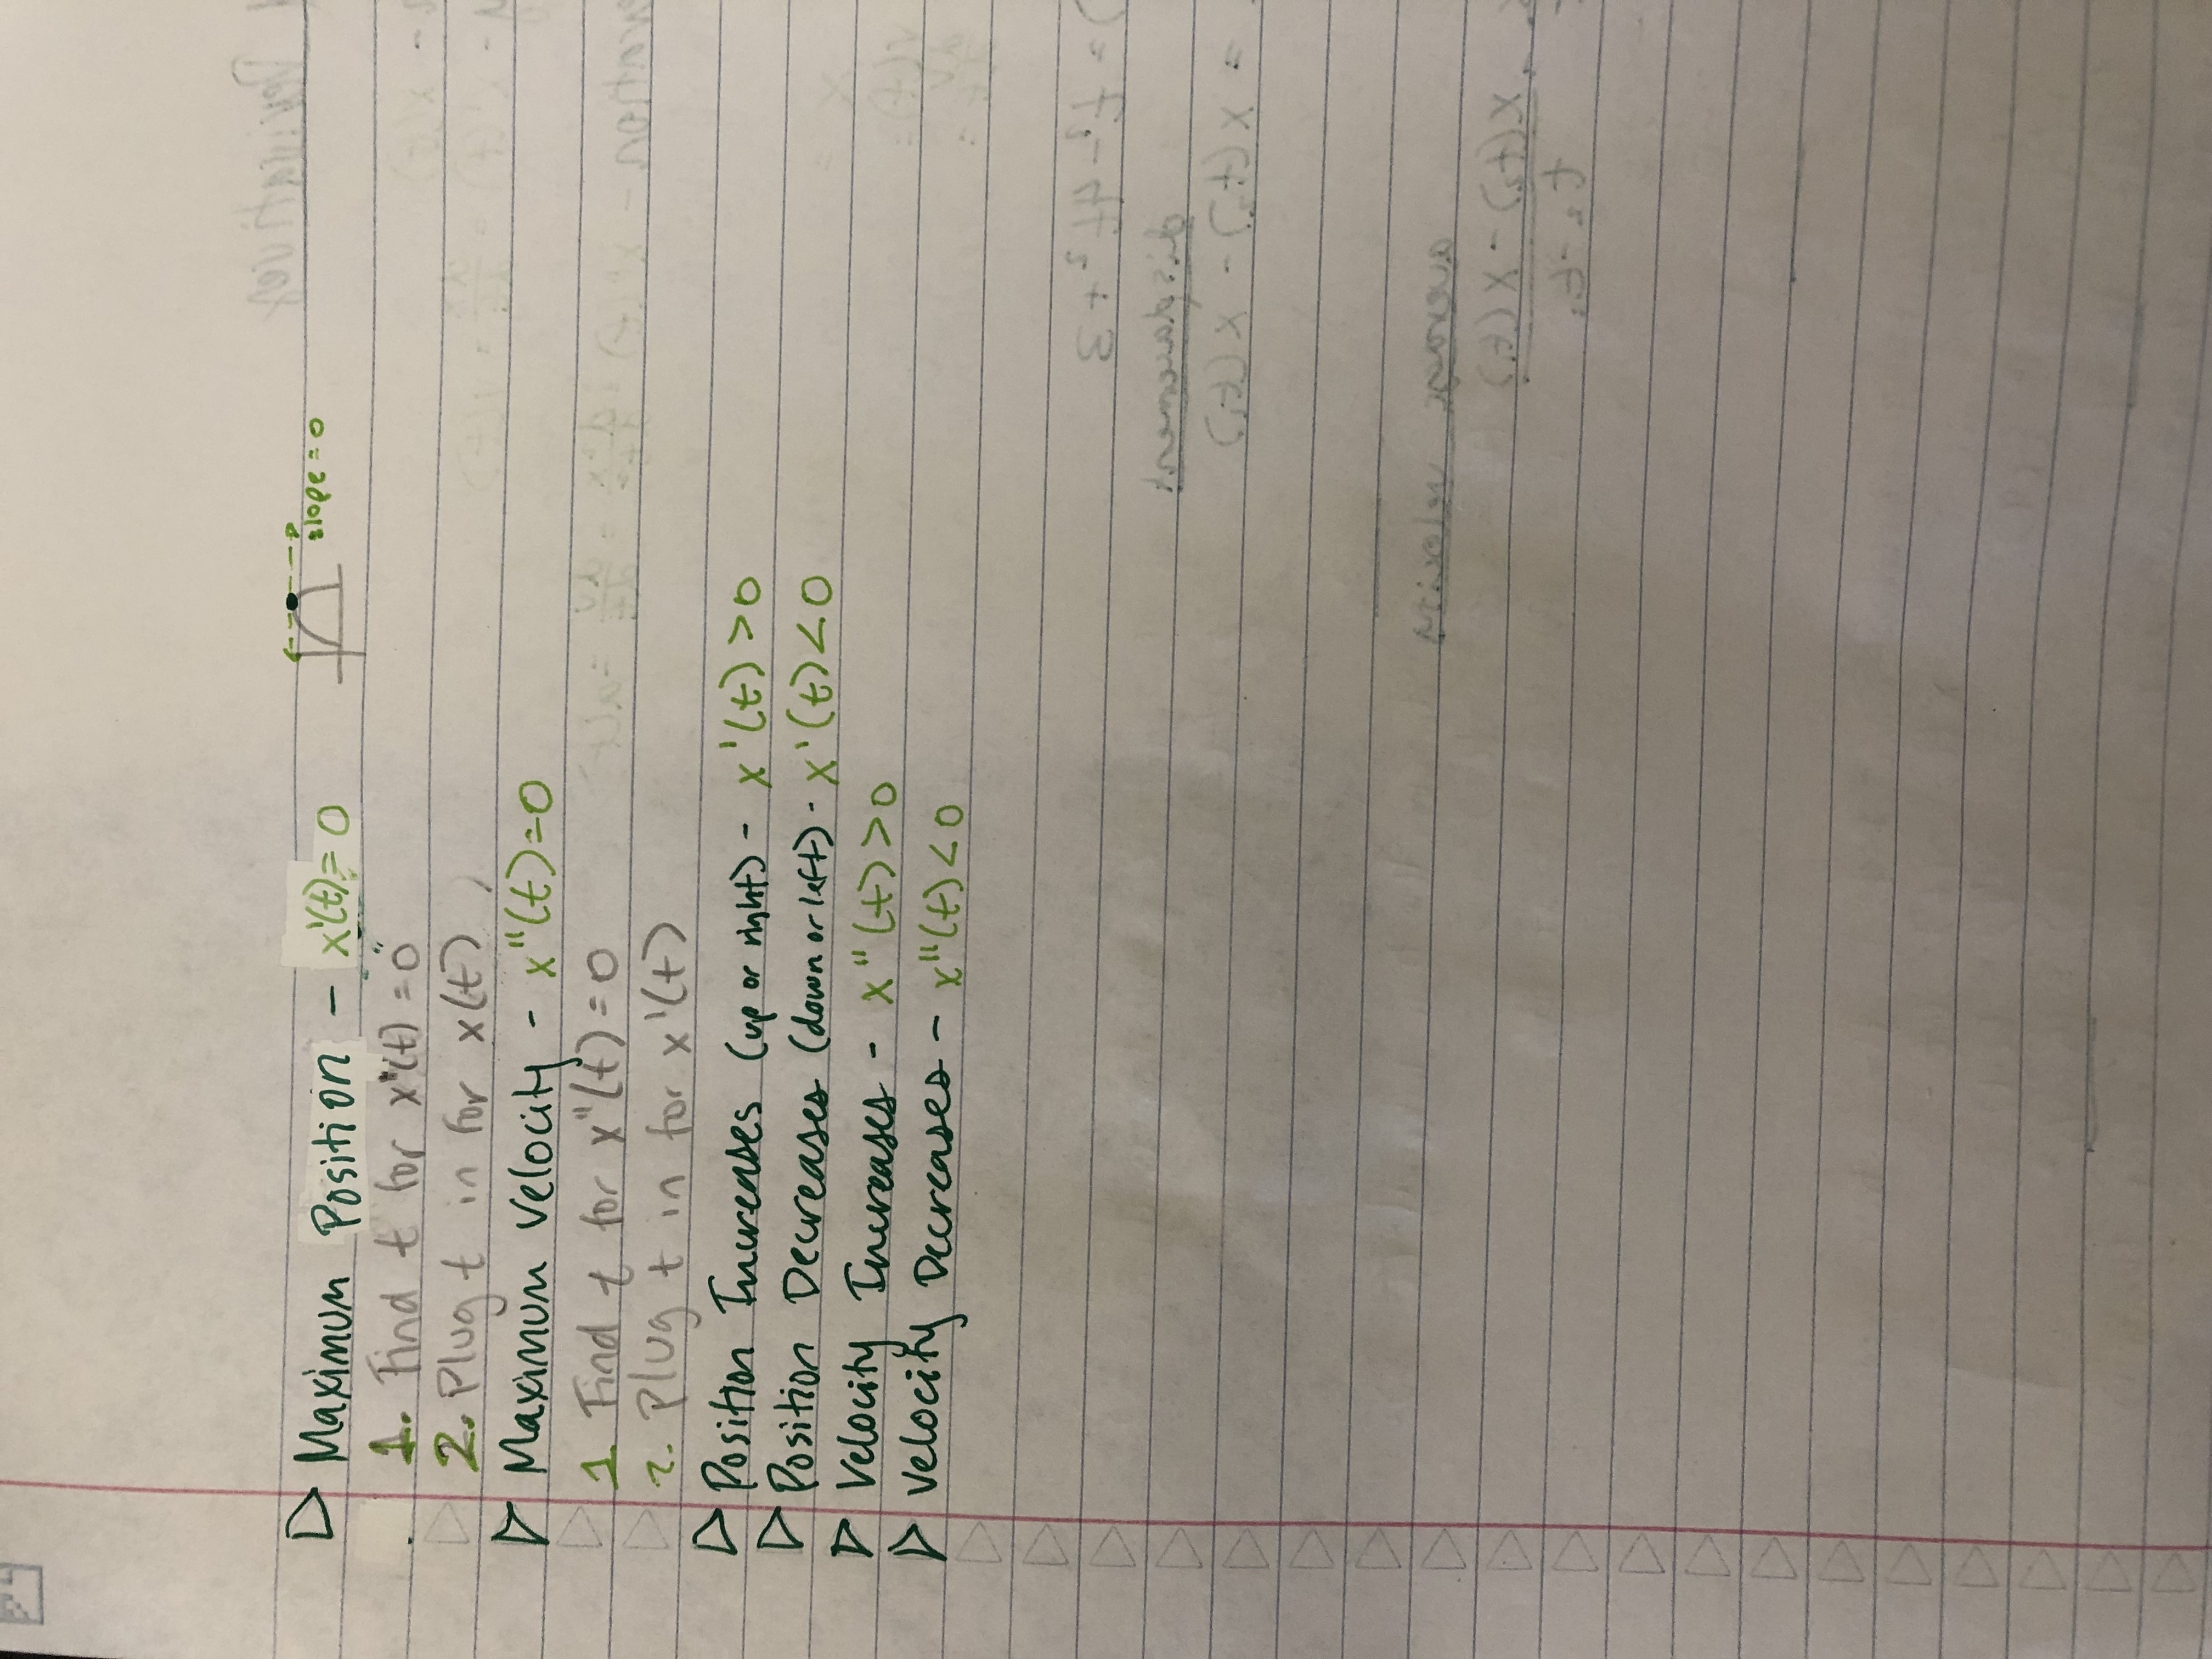 Maximum Position - x'(t) = 0
slope = 0
1. Find t for x"(t) = 0
2. Plug t in for x(t)
Maximum velocity - x"(t) = 0
1 Find t for x"(t) = 0
2. Plug t in for x'(t)
Position Increases (up or right) - x'(t) > 0
Position Decreases (down or left) - x'(t) < 0
Velocity Increases - x"(t) > 0
Velocity Decreases - x"(t) < 0